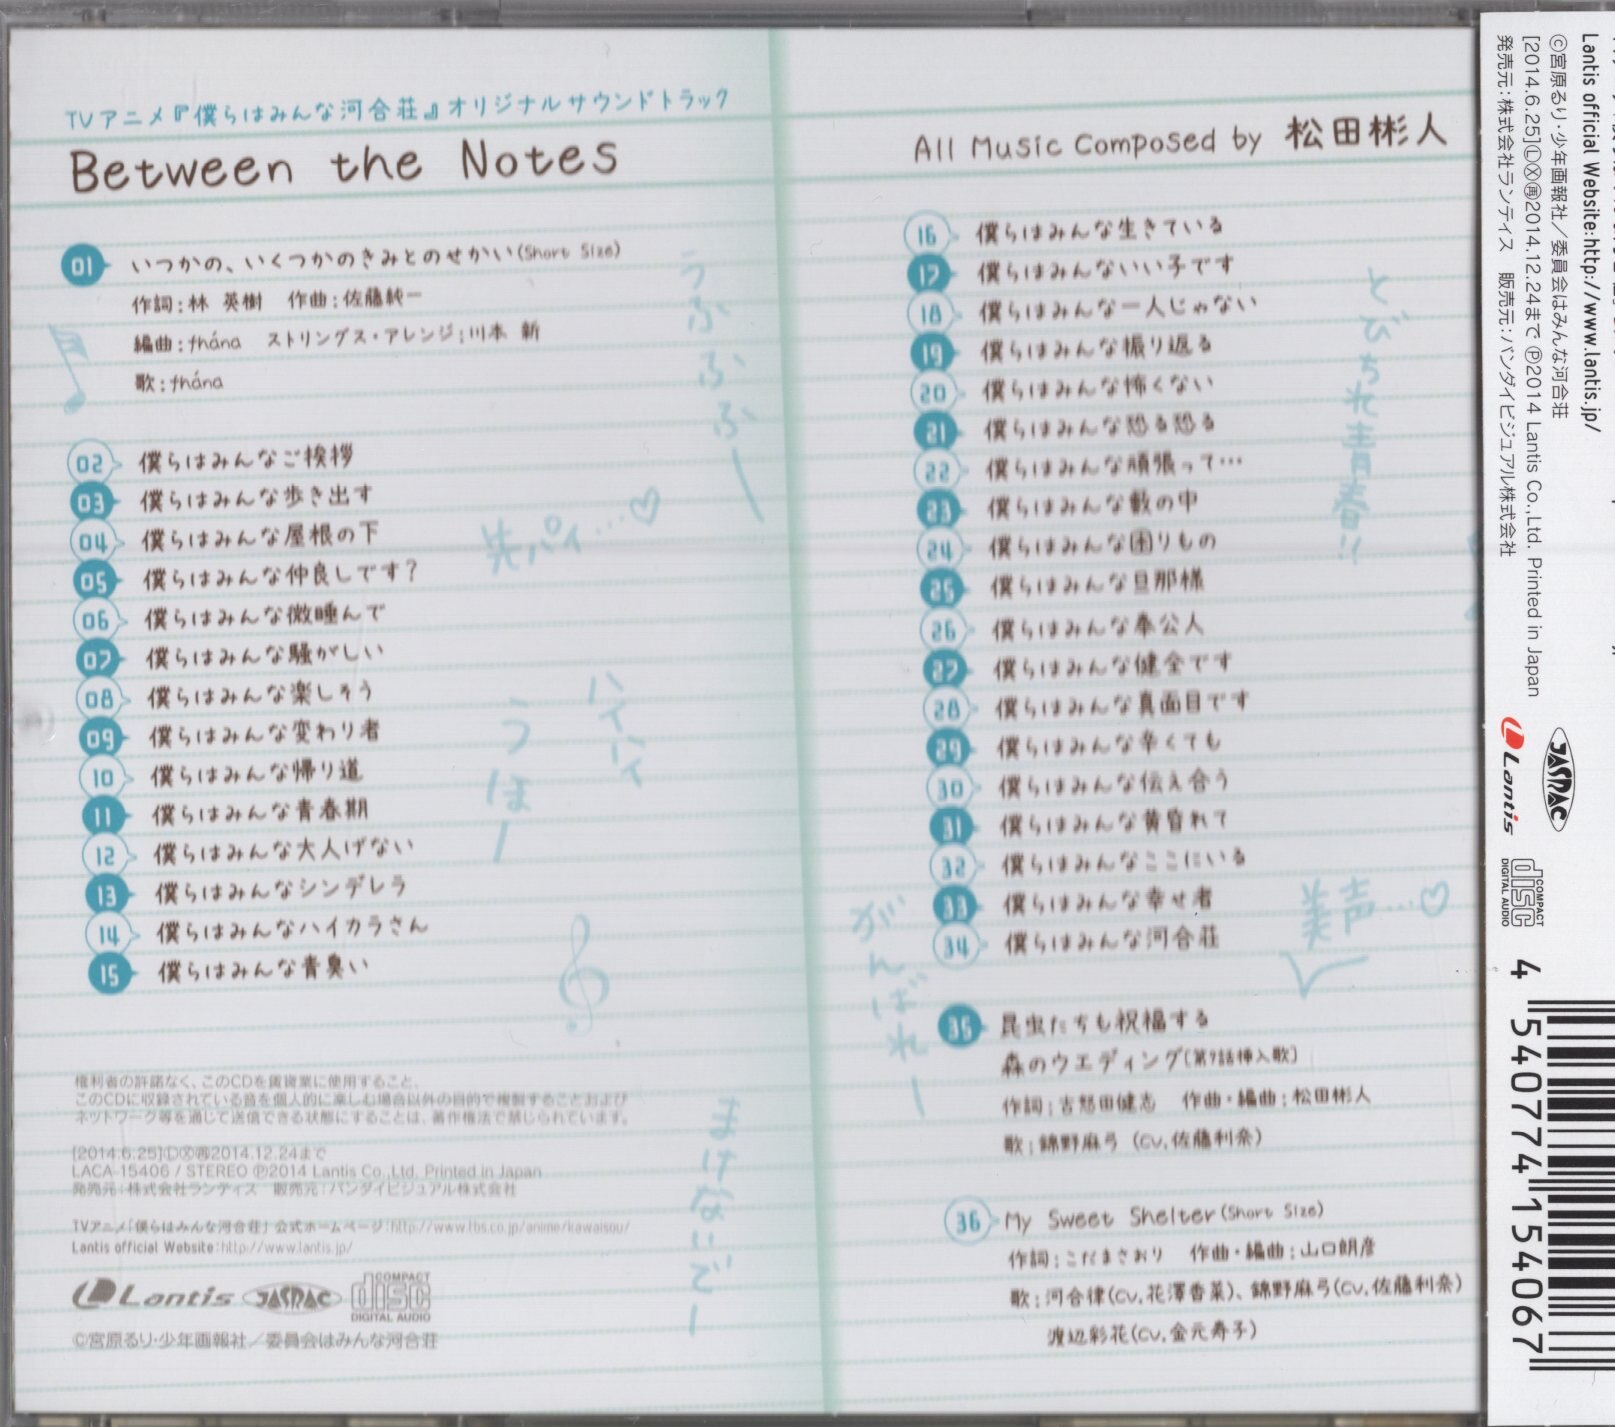 TVアニメ『僕らはみんな河合荘』オリジナルサウンドトラック
Between the Notes
01 いつかの、いくつかのきみとのせかい(Short Size)
作詞:林 英樹 作曲:佐藤純一
編曲:fhána ストリングス・アレンジ:川本 新
歌:fhána
02 僕らはみんなご挨拶
03 僕らはみんな歩き出す
04 僕らはみんな屋根の下
05 僕らはみんな仲良しです?
06 僕らはみんな微睡んで
07 僕らはみんな騒がしい
08 僕らはみんな楽しそう
09 僕らはみんな変わり者
10 僕らはみんな帰り道
11 僕らはみんな青春期
12 僕らはみんな大人げない
13 僕らはみんなシンデレラ
14 僕らはみんなハイカラさん
15 僕らはみんな青臭い
うふふふふー
先パイ…♡
ハイハイ
うほー
まけないでー
権利者の許諾なく、このCDを賃貸業に使用すること、
このCDに収録されている音を個人的に楽しむ場合以外の目的で複製することおよび
ネットワーク等を通じて送信できる状態にすることは、著作権法で禁じられています。
[2014.6.25]ⓁⓍ㊞2014.12.24まで
LACA-15406 / STEREO Ⓟ2014 Lantis Co.,Ltd. Printed in Japan
発売元:株式会社ランティス 販売元:バンダイビジュアル株式会社
TVアニメ「僕らはみんな河合荘」公式ホームページ:http://www.tbs.co.jp/anime/kawaisou/
Lantis official Website:http://www.lantis.jp/
Lantis JASRAC COMPACT disc DIGITAL AUDIO
©宮原るり・少年画報社／委員会はみんな河合荘
All Music Composed by 松田彬人
16 僕らはみんな生きている
17 僕らはみんないい子です
18 僕らはみんな一人じゃない
19 僕らはみんな振り返る
20 僕らはみんな怖くない
21 僕らはみんな恐る恐る
22 僕らはみんな頑張って…
23 僕らはみんな藪の中
24 僕らはみんな困りもの
25 僕らはみんな旦那様
26 僕らはみんな奉公人
27 僕らはみんな健全です
28 僕らはみんな真面目です
29 僕らはみんな辛くても
30 僕らはみんな伝え合う
31 僕らはみんな黄昏れて
32 僕らはみんなここにいる
33 僕らはみんな幸せ者
34 僕らはみんな河合荘
35 昆虫たちも祝福する
森のウエディング(第9話挿入歌)
作詞:古怒田健志 作曲・編曲:松田彬人
歌:錦野麻弓(CV.佐藤利奈)
36 My Sweet Shelter(Short Size)
作詞:こだまさおり 作曲・編曲:山口朗彦
歌:河合律(CV.花澤香菜)、錦野麻弓(CV.佐藤利奈)
渡辺彩花(CV.金元寿子)
とびちれ青春!!
美声…♡
がんばれー
Lantis official Website:http://www.lantis.jp/
©宮原るり・少年画報社／委員会はみんな河合荘
[2014.6.25]ⓁⓍ2014.12.24まで Ⓟ2014 Lantis Co.,Ltd. Printed in Japan
発売元:株式会社ランティス 販売元:バンダイビジュアル株式会社
Lantis
JASRAC
COMPACT disc DIGITAL AUDIO
4 540774 154067